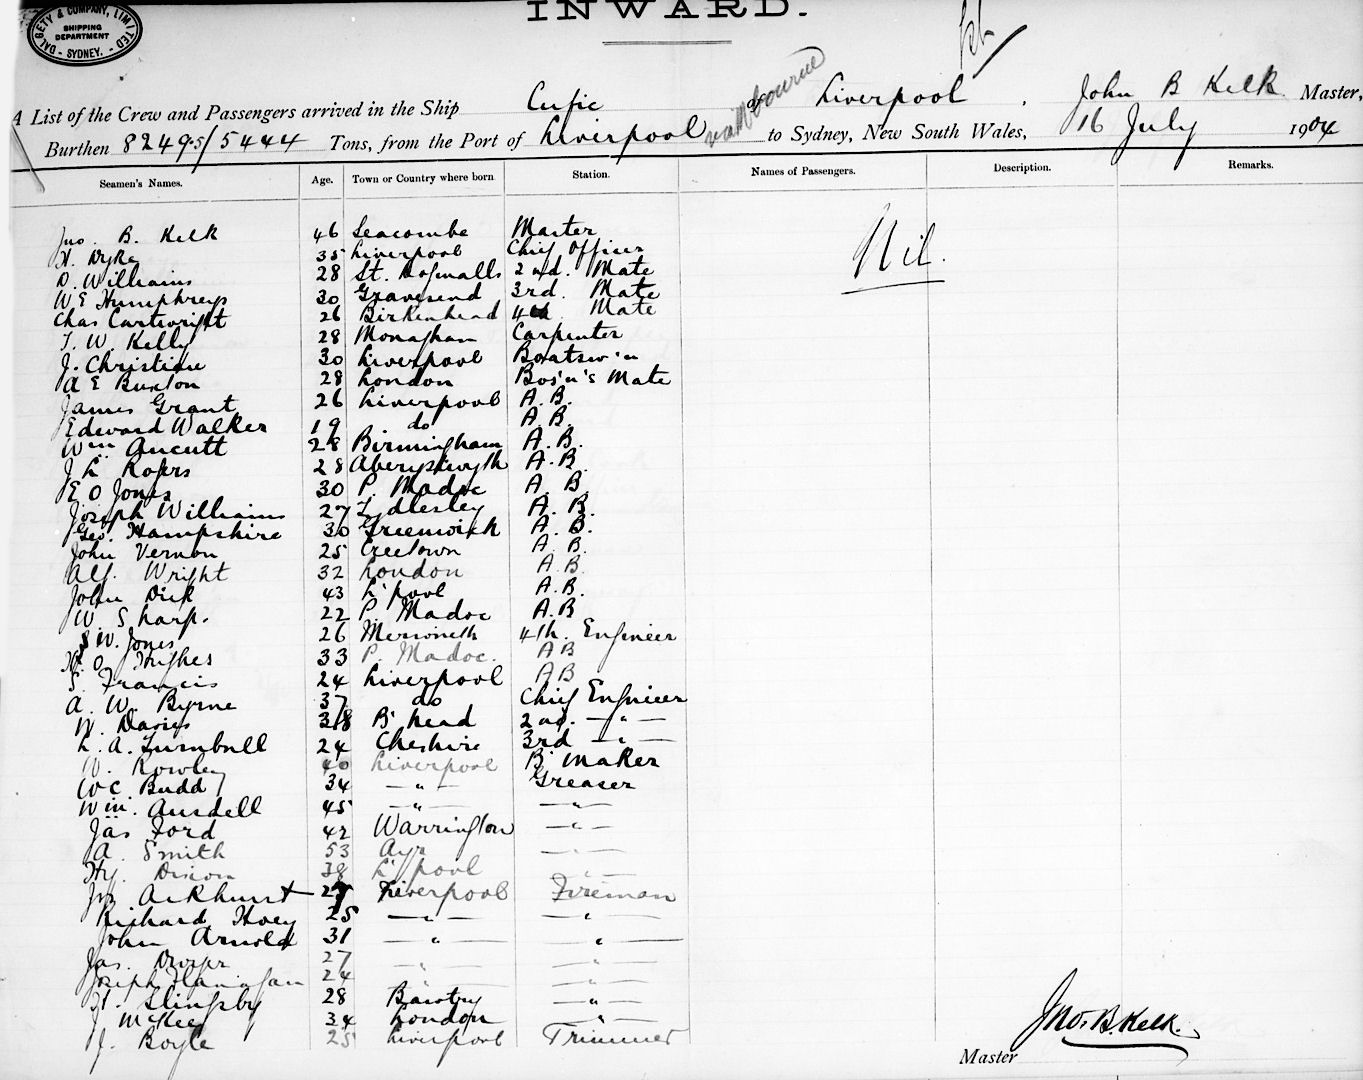 INWARD.
DALGETY & COMPANY, LIMITED
SHIPPING
DEPARTMENT
- SYDNEY. -
A List of the Crew and Passengers arrived in the Ship Cufic of Liverpool, John B Kelk Master,
Burthen 8249.5/5444 Tons, from the Port of Liverpool via Melbourne to Sydney, New South Wales, 16 July 1904
Seamen's Names. Age. Town or Country where born Station. Names of Passengers. Description. Remarks.
Jno. B. Kelk 46 Seacombe Master
Nil.
H. Dyke 35 Liverpool Chief Officer
O. Williams 28 St. 2nd. Mate
W E Humphreys 30 Gravesend 3rd. Mate
Chas Cartwright 26 Birkenhead 4th Mate
T. W. Kelly 28 Monaghan Carpenter
J. Christian 30 Liverpool Boatsw'n
A E Buxton 28 London Bos'n's Mate
James Grant 26 Liverpool A. B.
Edward Walker 19 do A. B.
Wm Aucutt 28 Birmingham A. B.
J L Rogers 28 Aberystwyth A. B.
E O Jones 30 P. Madoc A. B.
Joseph Williams 27 Tyldesley A. B.
Geo. Hampshire 30 Greenwich A. B.
John Vernon 25 Creetown A. B.
Alf. Wright 32 London A. B.
John Dick 43 L'pool A. B.
W. Sharp. 22 P. Madoc A. B
W. Jones 26 Merioneth 4th. Engineer
O Hughes 33 P. Madoc. A B
S. Francis 24 Liverpool A B
A. W. Byrne 37 do Chief Engineer
W. Davies 38 B'head 2nd. — " —
L. A. Turnbull 24 Cheshire 3rd — " —
W. Rowley 40 Liverpool B. Maker
W C Budd 34 — " — Greaser
Wm. Ansdell 45 — " — — " —
Jas Ford 42 Warrington — " —
A. Smith 53 Ayr — " —
Hy. Dixon 38 L'pool — " —
Jno Arkhurst 27 Liverpool Fireman
Richard Hoey 25 — " — — " —
John Arnold 31 — " — — " —
Jas. Dwyer 27 — " — — " —
Joseph Flanagan 24 — " — — " —
H. Slingsby 28 Bawtry — " —
J McKee 34 London — " —
J. Boyle 25 Liverpool Trimmer
Jno. B. Kelk.
Master